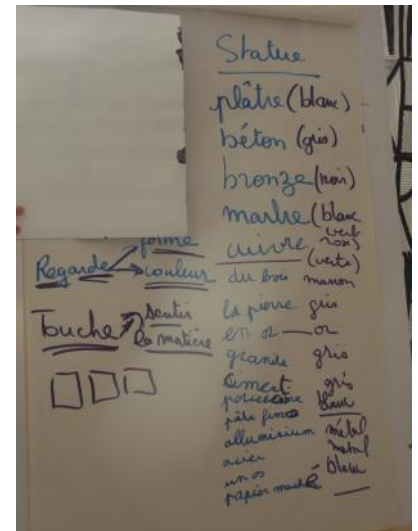 Statue
plâtre (blanc)
béton (gris)
bronze (noir)
marbre (blanc
vert
noir)
cuivre (verte)
du bois marron
la pierre gris
en or — or
granite gris
ciment gris
porcelaine blanc
pâte fimo
alluminium métal
acier métal
un os blanc
papier maché —
Regarde forme
couleur
Touche sentir
la matière